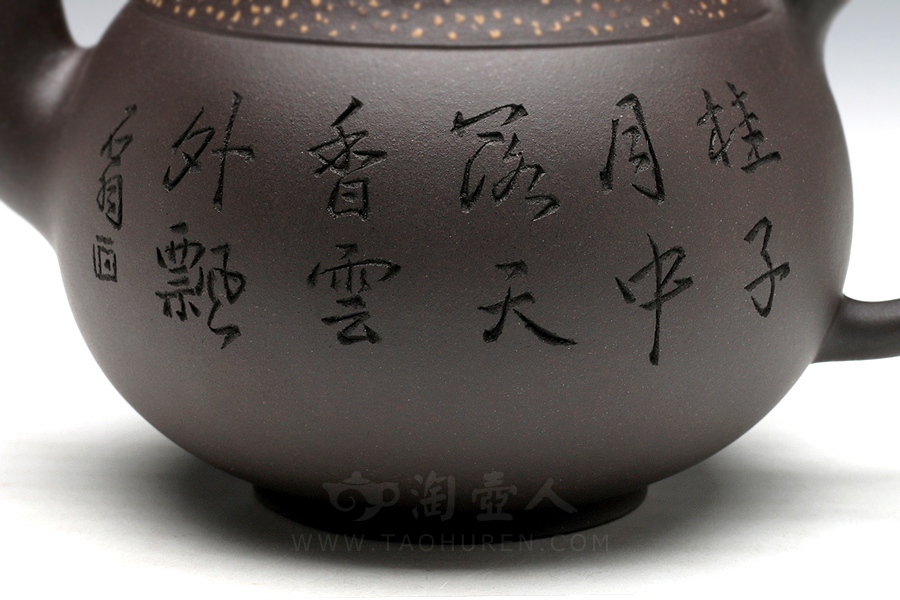 桂子
月中
落天
香雲
外飄
淘壺人
WWW.TAOHUREN.COM